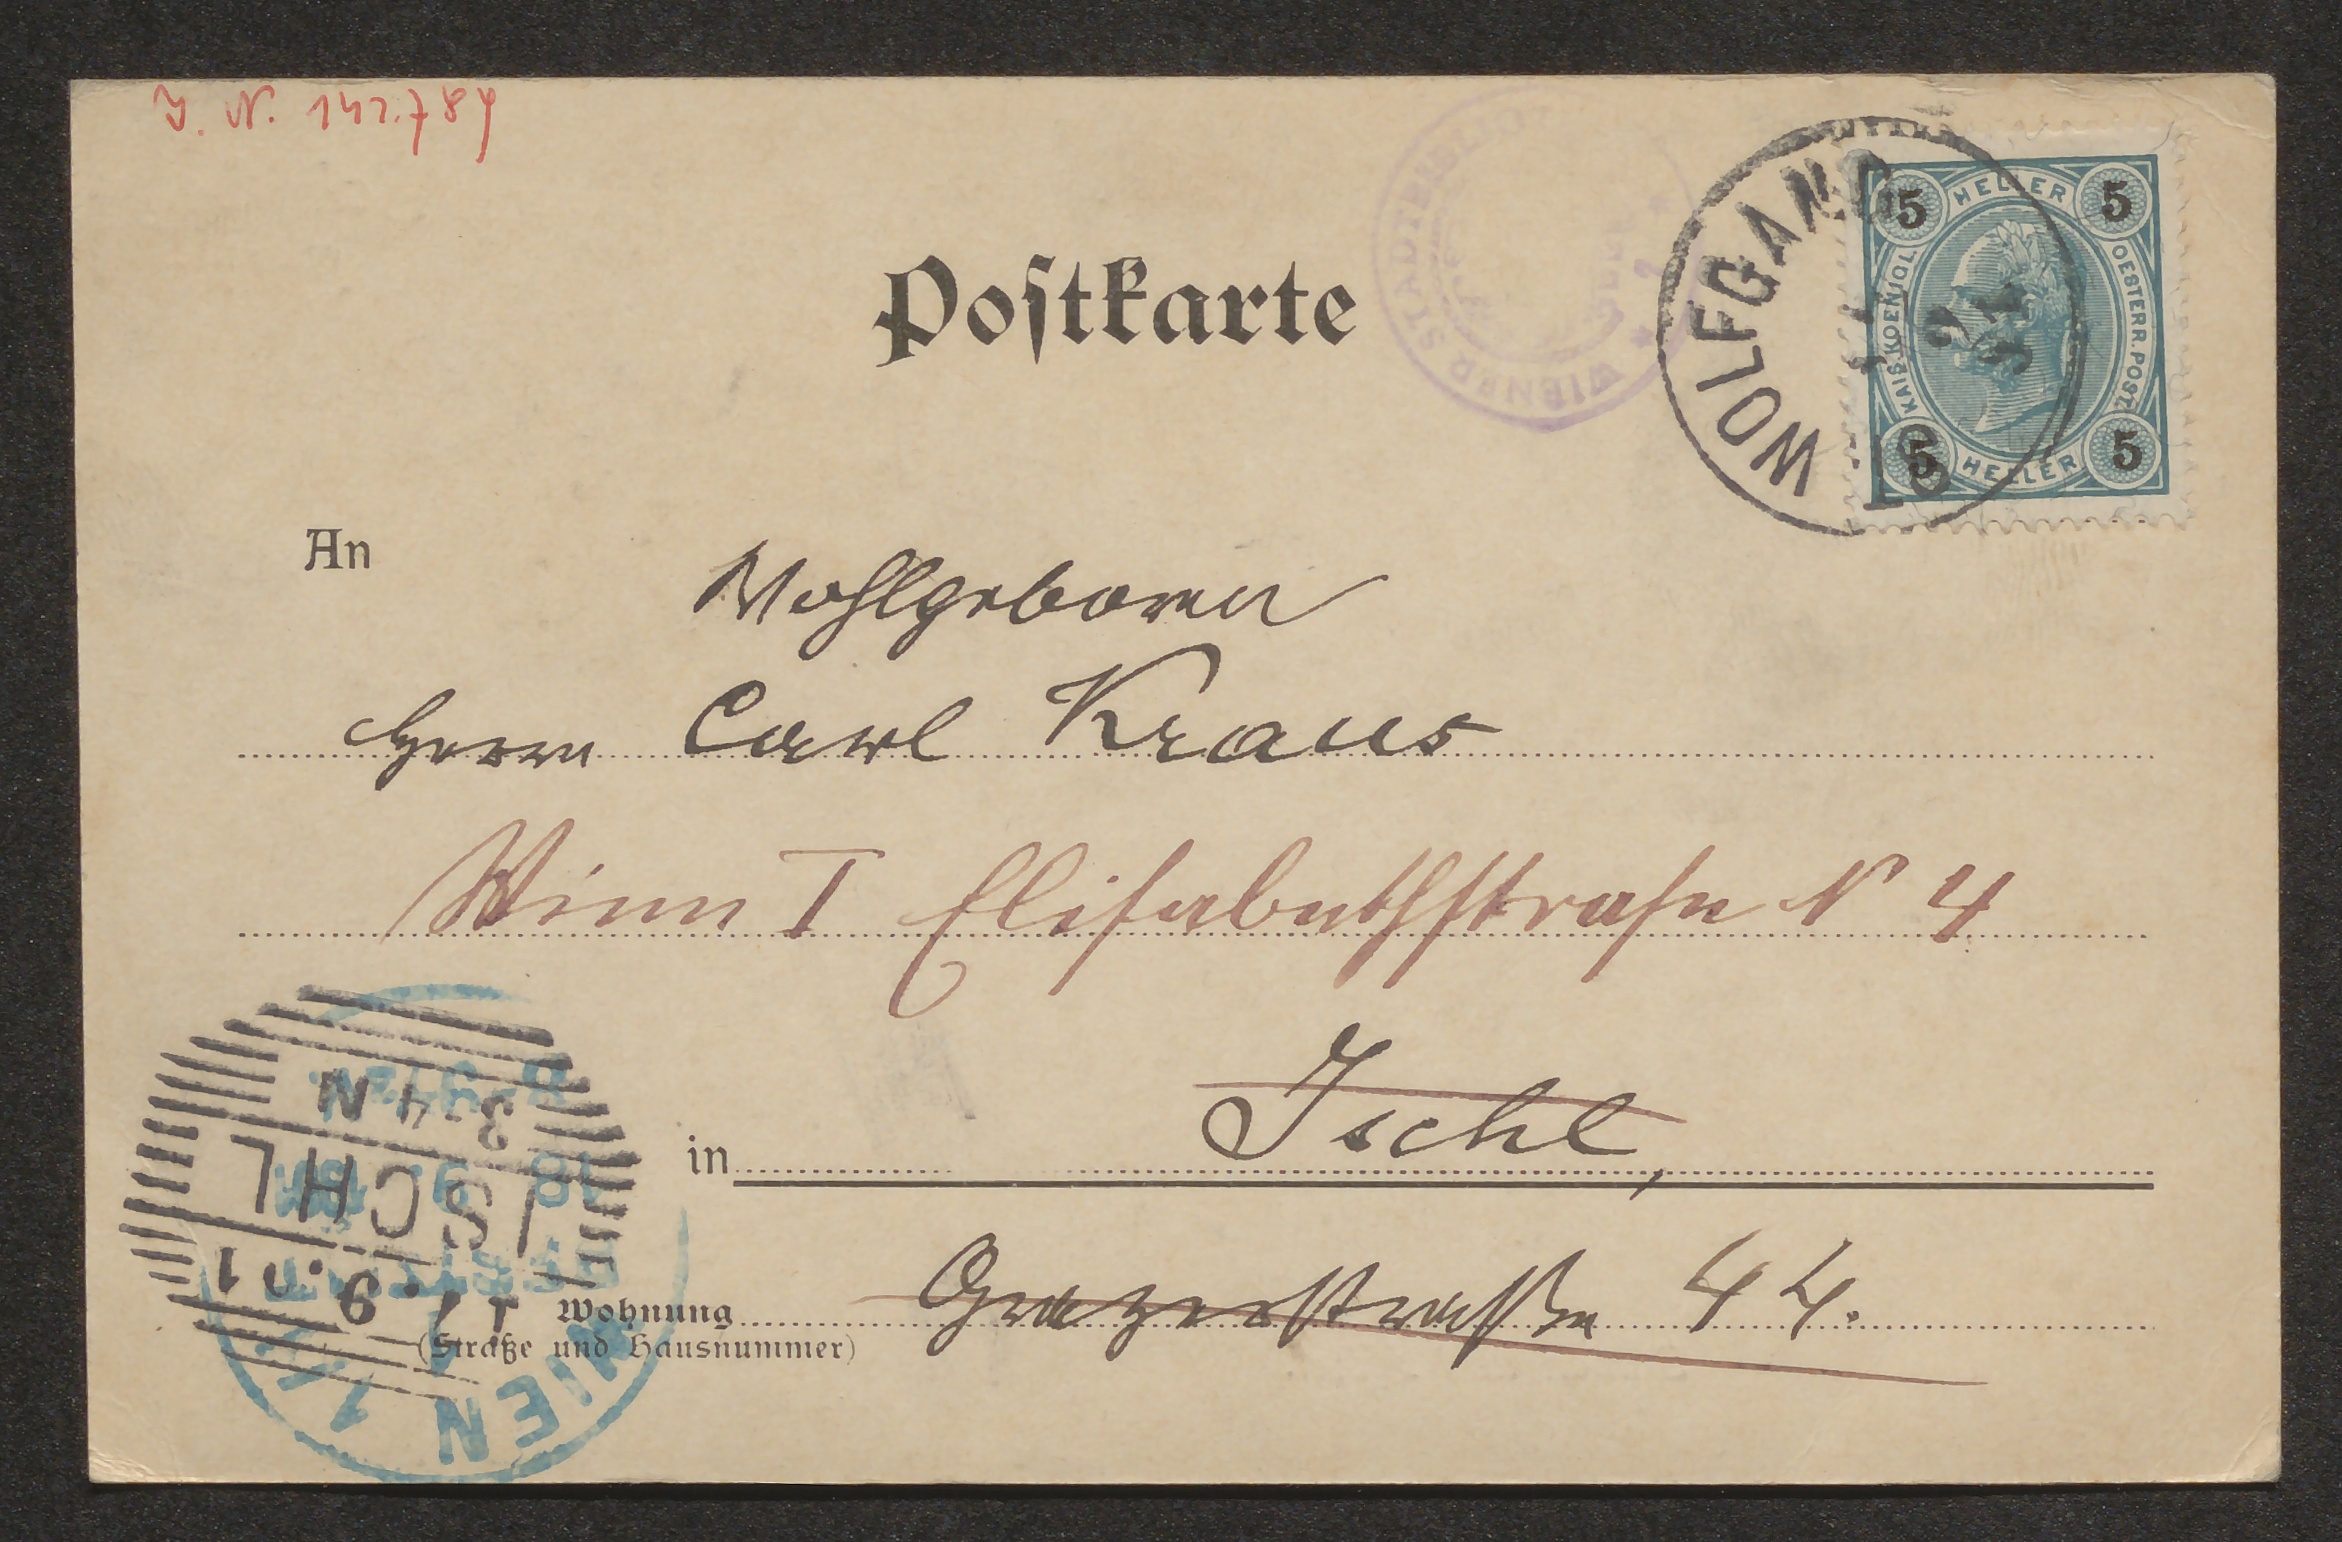 I. N. 142.789
Postkarte
WOLFGANG
5 HELLER 5
KAIS. KOENIGL.
OESTERR. POST
5 HELLER 5
WIENER STADTBIBLIOT
An
Wohlgeboren
Herrn Carl Kraus
Wien I Elisabethstraße N 4
in Ischl,
Wohnung Grazerstraße 44.
(Straße und Hausnummer)
3-4 N
ISCHL
17.9.01
18 9. 01
BESTELLT
WIEN 1/1